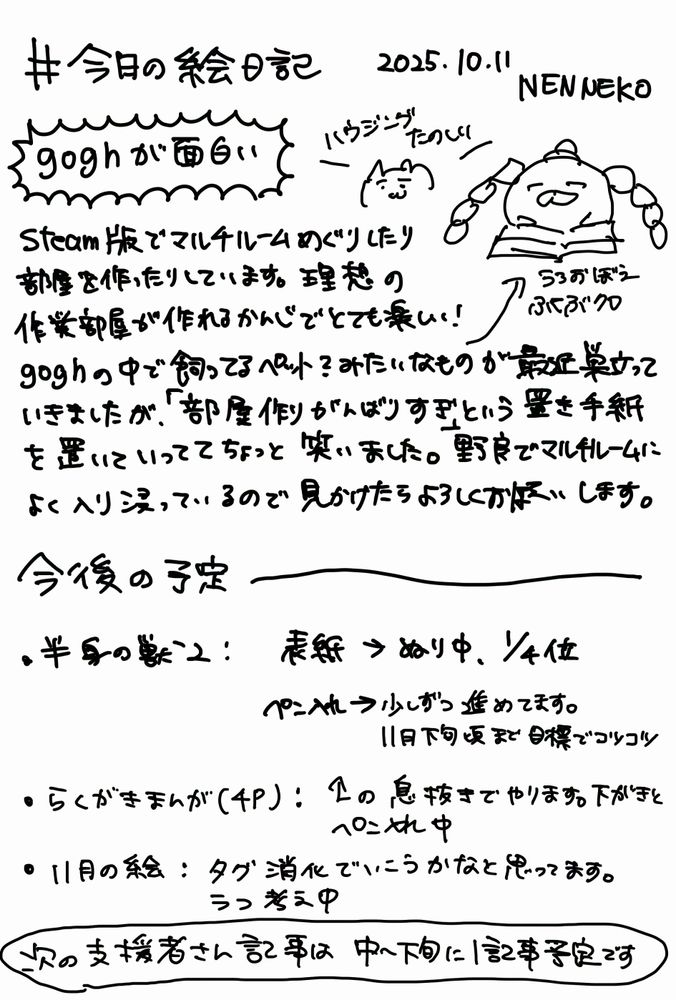 #今日の絵日記
2025.10.11
NENNEKO
goghが面白い
ハウジング
たのしい
Steam版でマルチルームめぐりしたり
部屋を作ったりしています。理想の
作業部屋が作れるかんじでとても楽しい!
うろおぼえ
ふくぶクロ
goghの中で飼ってるペット?みたいなものが最近巣立って
いきましたが、「部屋作りがんばりすぎ」という置き手紙
を置いていっててちょっと笑いました。野良でマルチルームに
よく入り浸っているので見かけたらよろしくおねがいします。
今後の予定
・半身の獣2: 表紙→ぬり中、1/4位
ペン入れ→少しずつ進めてます。
11月下旬頃まで目標でコツコツ
・らくがきまんが(4P): ↑の息抜きでやります。下がきと
ペン入れ中
・11月の絵: タグ消化でいこうかなと思ってます。
ラフ考え中
次の支援者さん記事は 中〜下旬に1記事予定です